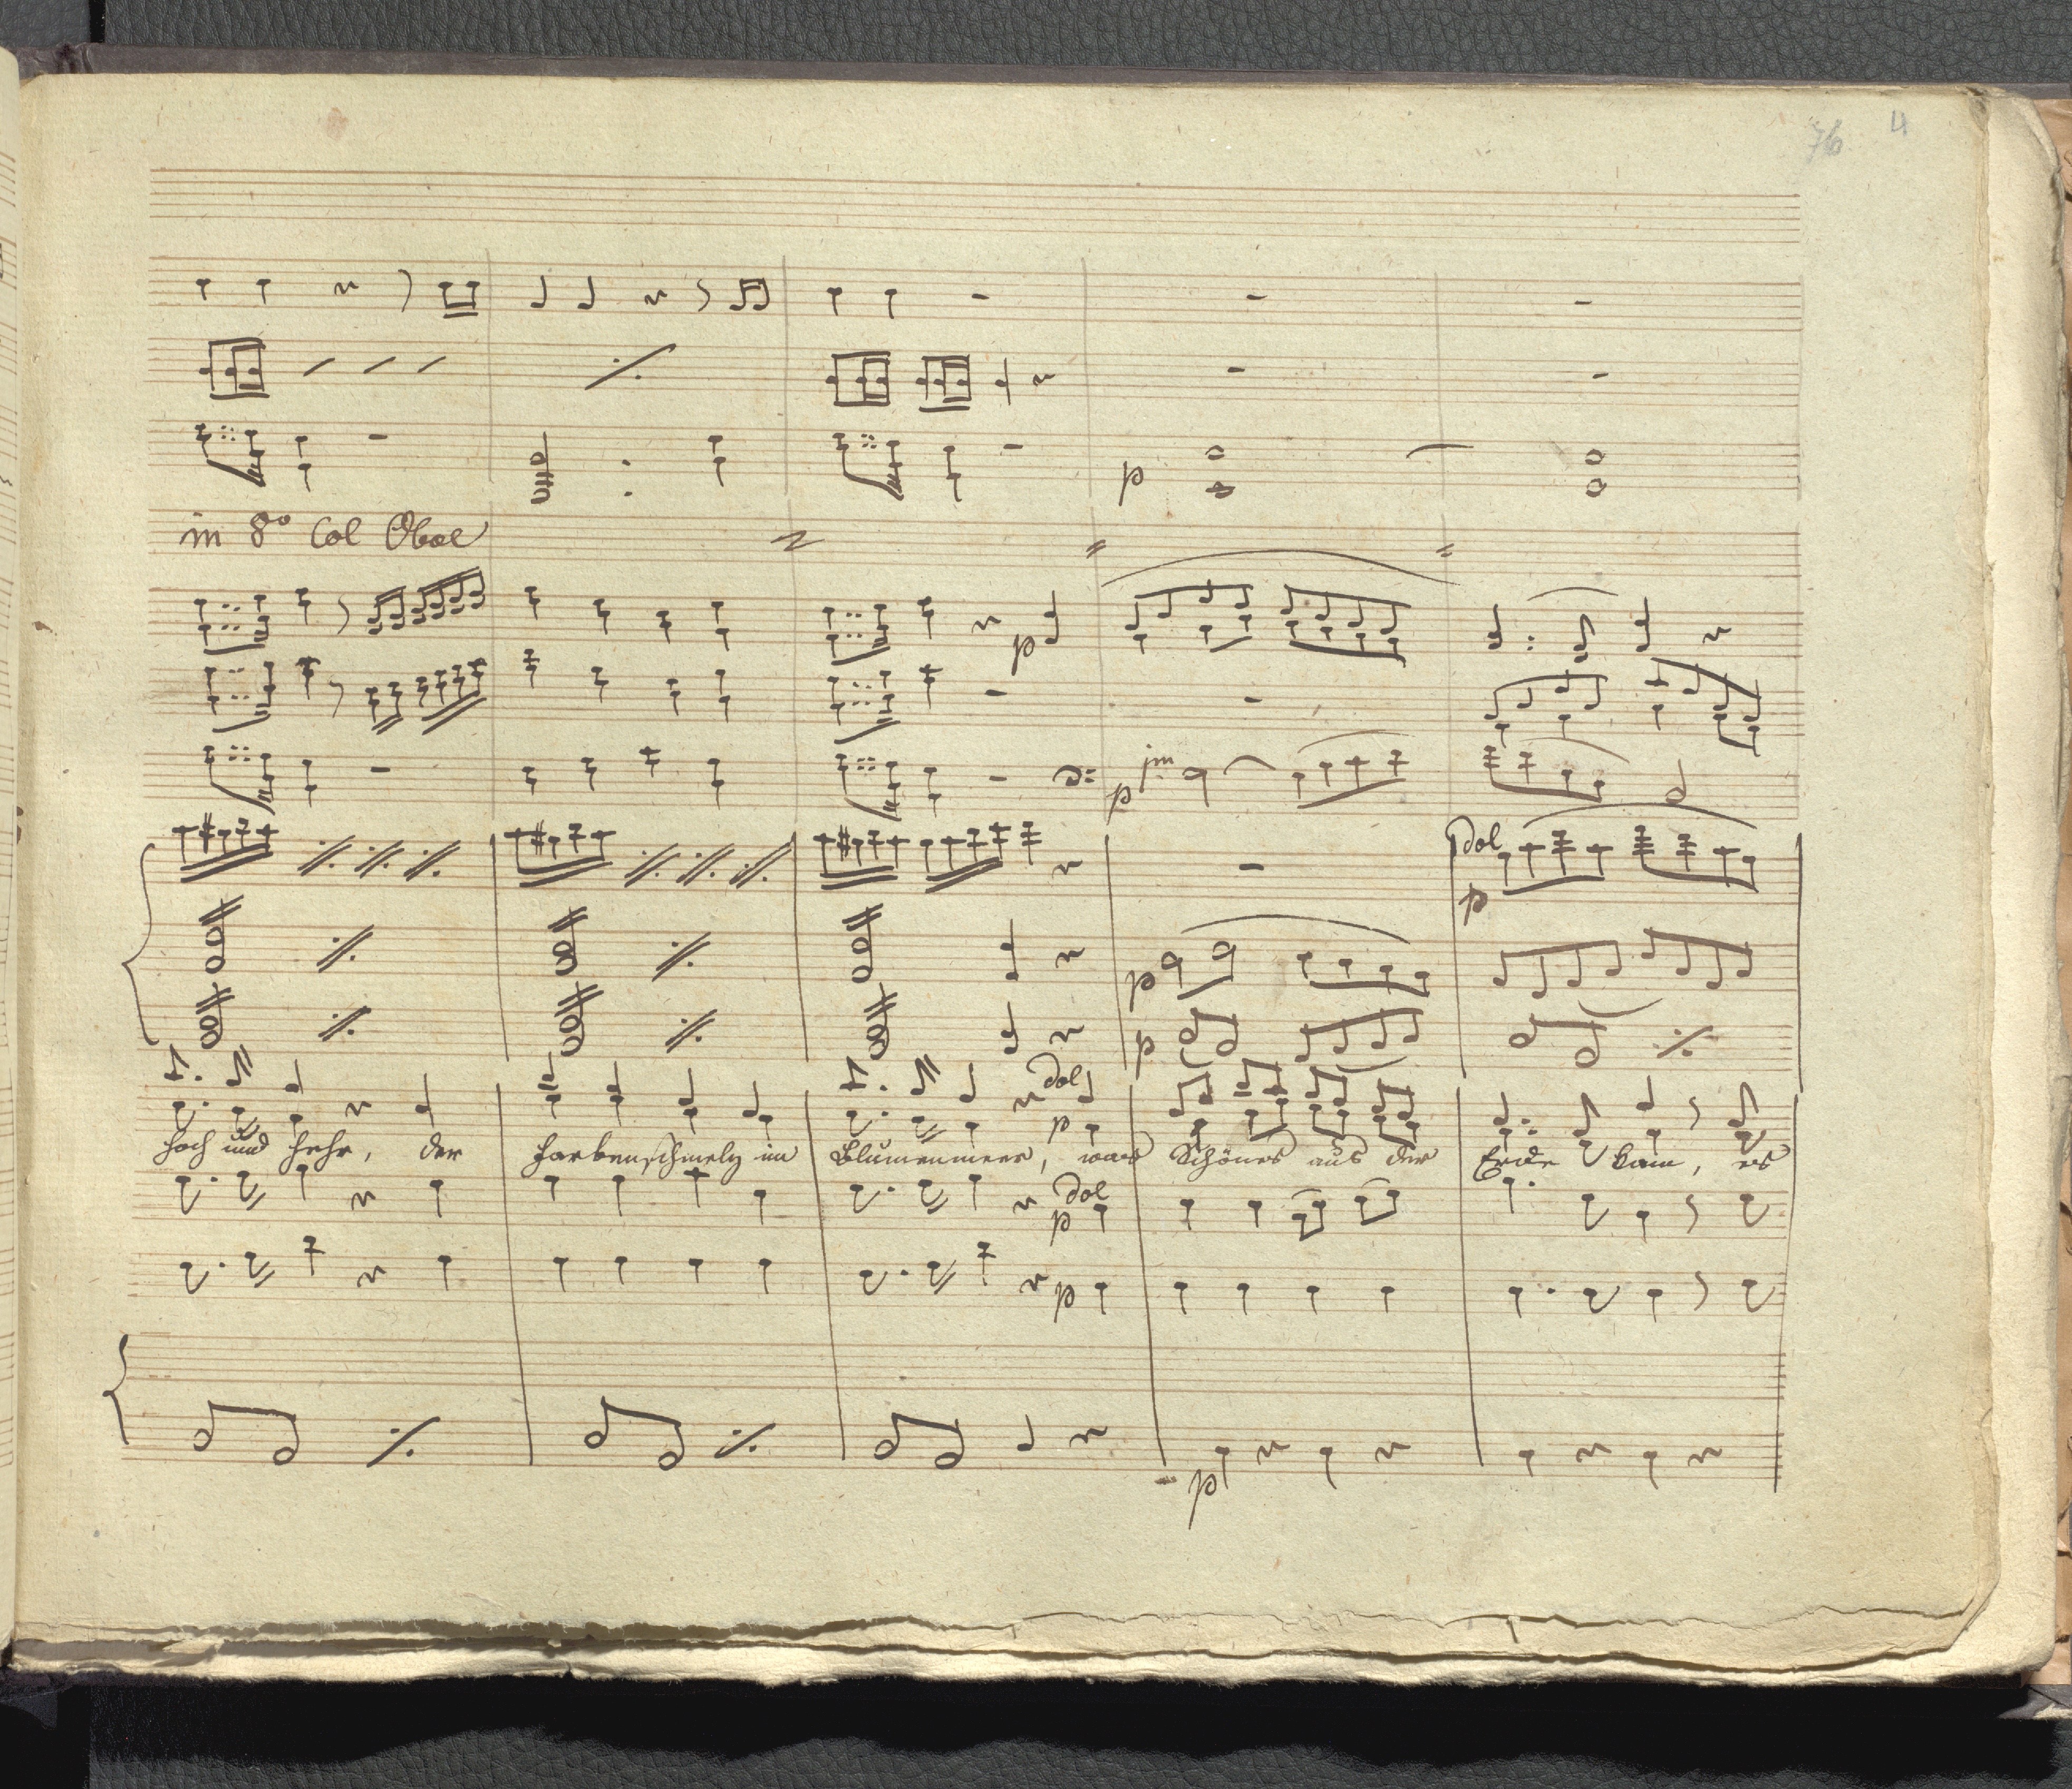 76 4
in 8º Col Oboe
p
p
p jm
Dol
p
p
p
Dol
p
hoch und hehr, der Farbenschmelz im Blumenmeer, was Schönes aus der Erde kam, es
Dol
p
p
p